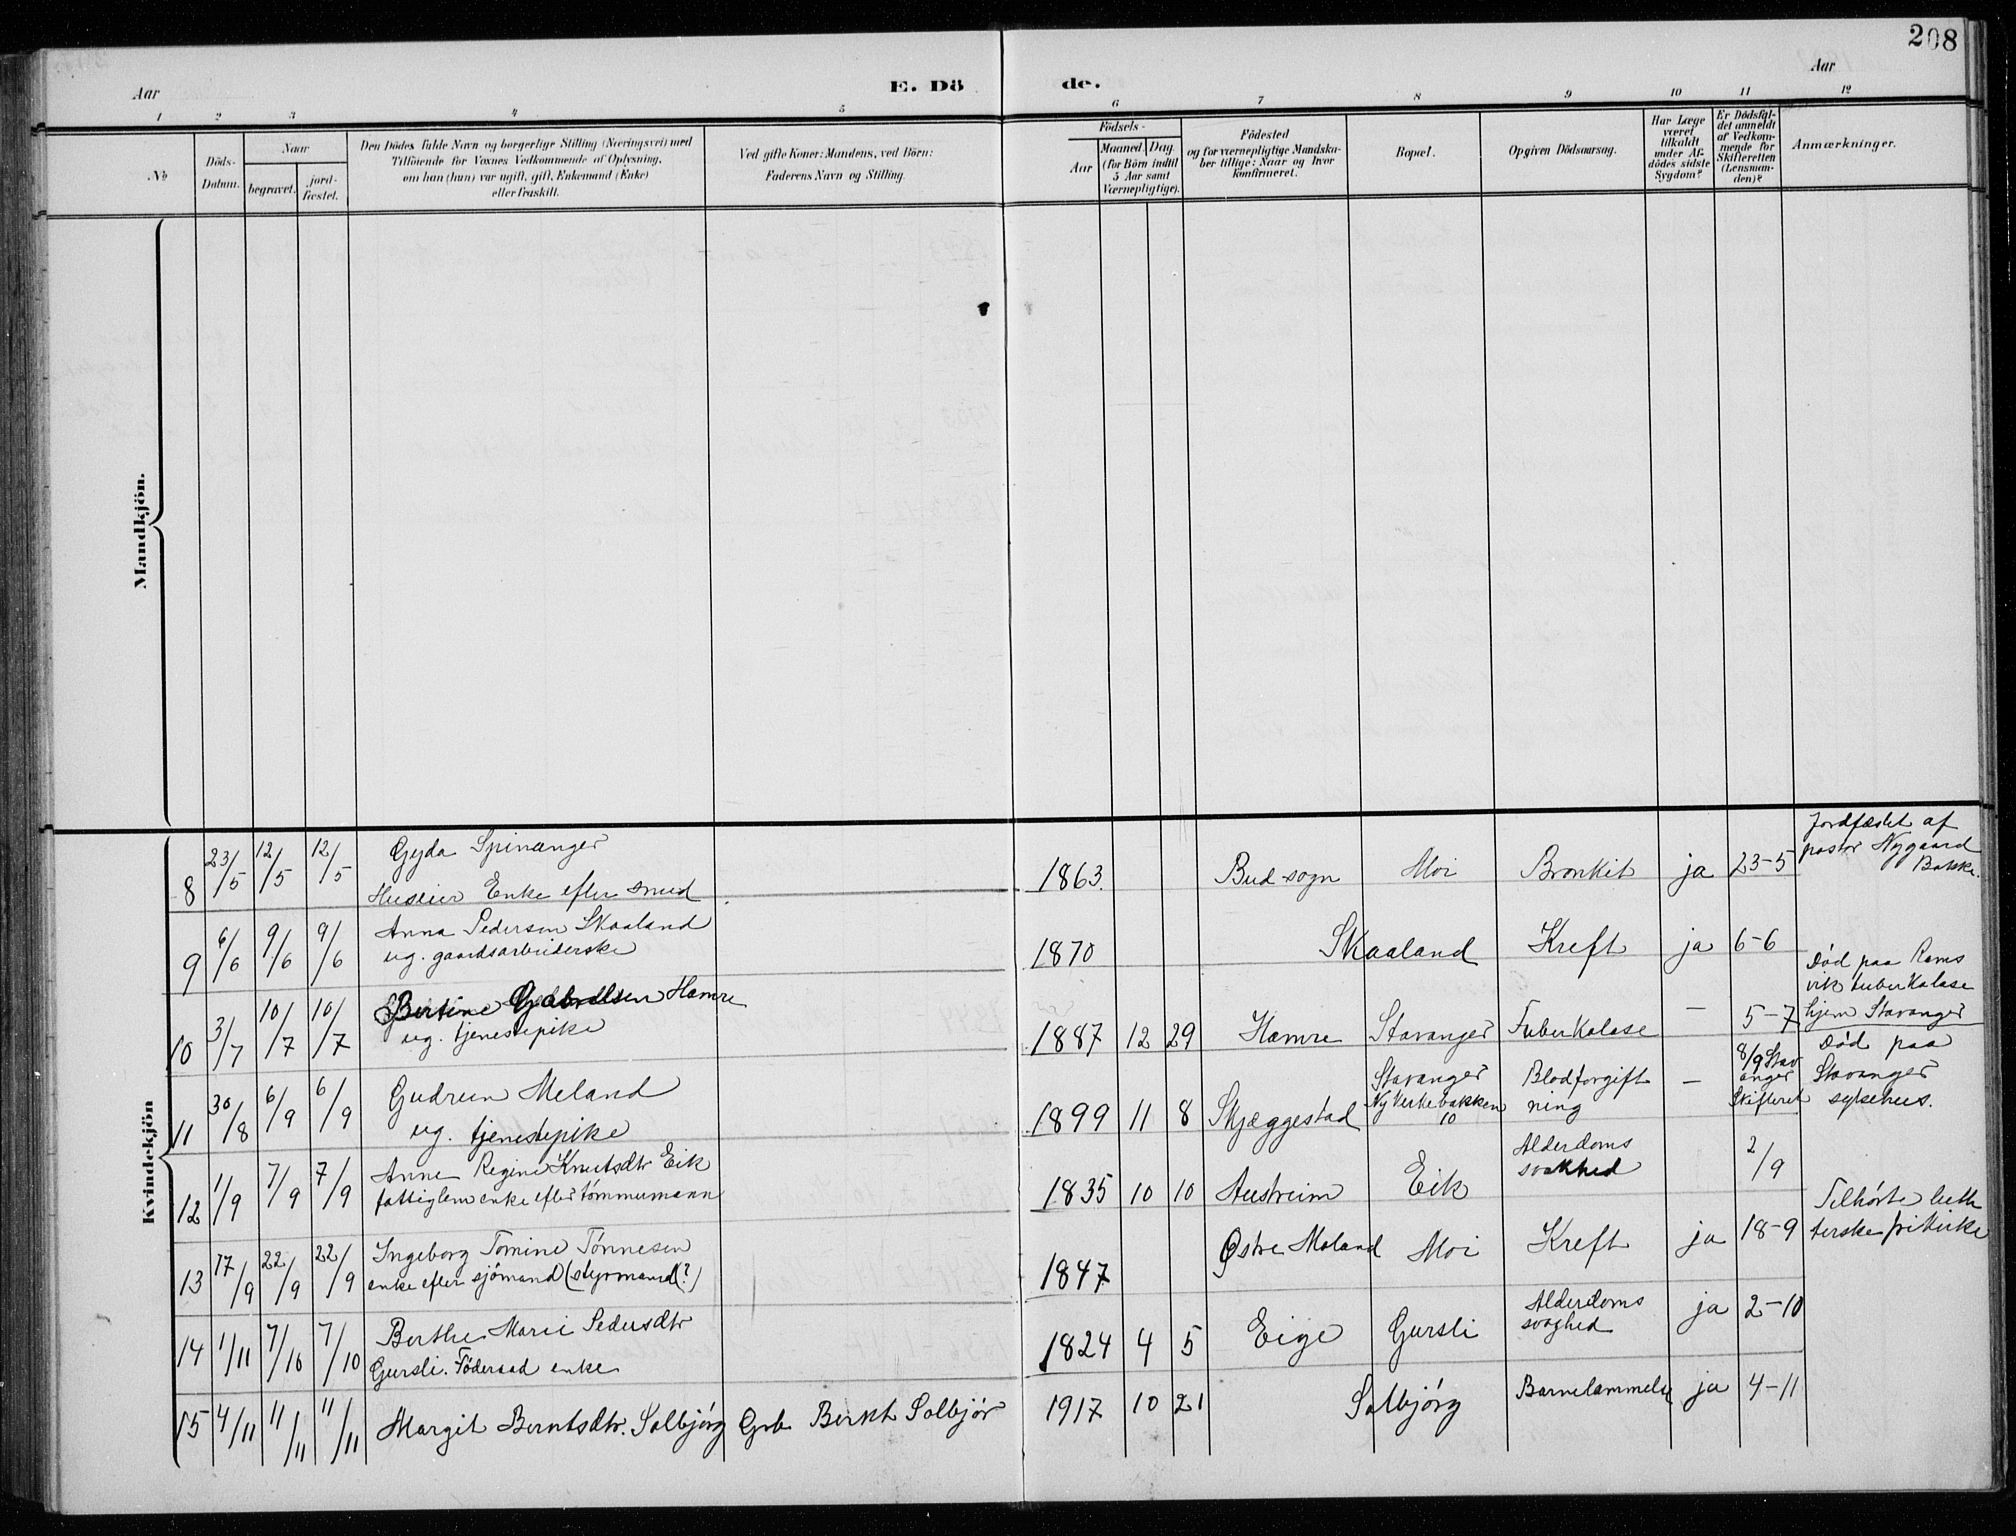 208
Aar
E. Dö
de.
Aar
1 2 3 4 5 6 7 8 9 10 11 12
No
Döds-
Datum.
Naar
begravet.
jord-
fæstet.
Den Dödes fulde Navn og borgerlige Stilling (Næringsvei) med
Tilföiende for Voxnes Vedkommende af Oplysning,
om han (hun) var ugift, gift, Enkemand (Enke)
eller fraskilt.
Ved gifte Koner: Mandens, ved Börn:
Faderens Navn og Stilling.
Födsels-
Aar
Maaned. Dag.
(for Börn indtil
5 Aar samt
Værnepligtige).
Födested
og for værnepligtige Mandska-
ber tillige: Naar og hvor
konfirmeret.
Bopæl.
Opgiven Dödsaarsag.
Har Læge
været
tilkaldt
under Af-
dödes sidste
Sygdom?
Er Dödsfal-
det anmeldt
af Vedkom-
mende for
Skifteretten
(Lensman-
den)?
Anmærkninger.
Mandkjön.
Kvindekjön
8 23/5 12/5 12/5 Gyda Spinanger
Huseier Enke efter smed
1863. Bud sogn Moi Bronkit ja 23-5
Jordfæstet af
pastor Nygaard
Bakke.
9 6/6 9/6 9/6 Anna Pedersen Skaaland
ug. gaardsarbeiderske
1870 Skaaland Kreft ja 6-6
10 3/7 10/7 10/7 Bertine Gabrielsen Hamre
ug. tjenestepike
1887 12 29 Hamre Stavanger Tuberkulose — 5-7
Død paa Rams
vik tuberkulose
hjem Stavanger
11 30/8 6/9 6/9 Gudrun Meland
ug. tjenestepike
1899 11 8 Skjæggestad
Stavanger
Ny Verkebakken
10
Blodforgift
ning
—
8/9 Stav
anger
Skifteret
Død paa
Stavanger
sykehus.
12 1/9 7/9 7/9 Anne Regine Knutsdtr Eik
fattiglem enke efter tømmermann
1835 10 10 Austreim Eik
Alderdoms
svakhed
2/9
13 17/9 22/9 22/9 Ingeborg Tomine Tønnesen
enke efter sjömand (styrmand(?)
1847 Østre Moland Moi Kreft ja 18-9
Tilhørte luth
terske frikirke
14 1/11 7/10 7/10 Berthe Marie Pedersdtr
Gursli. Föderaad enke
1824 4 5 Eige Gursli
Alderdoms
svaghed
ja 2-10
15 4/11 11/11 11/11 Margit Berntsdtr. Solbjörg Grb Bernt Solbjör
1917 10 21 Solbjörg Barnelammelse ja 4-11